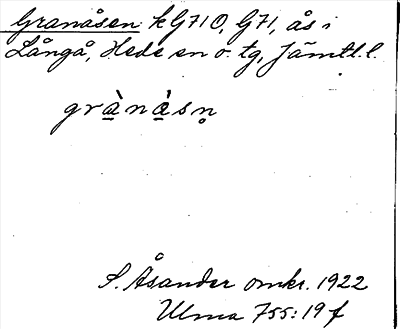 Granåsen k G71 O, G71, ås i
Långå, Hede sn o. tg, Jämtl. l.
gràṇàsṇ
S. Åsander omkr. 1922
Ulma 755:19 f